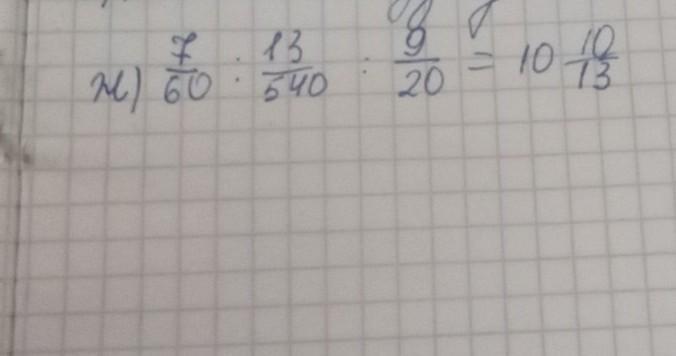 ж) 7/60 : 13/540 : 9/20 = 10 10/13